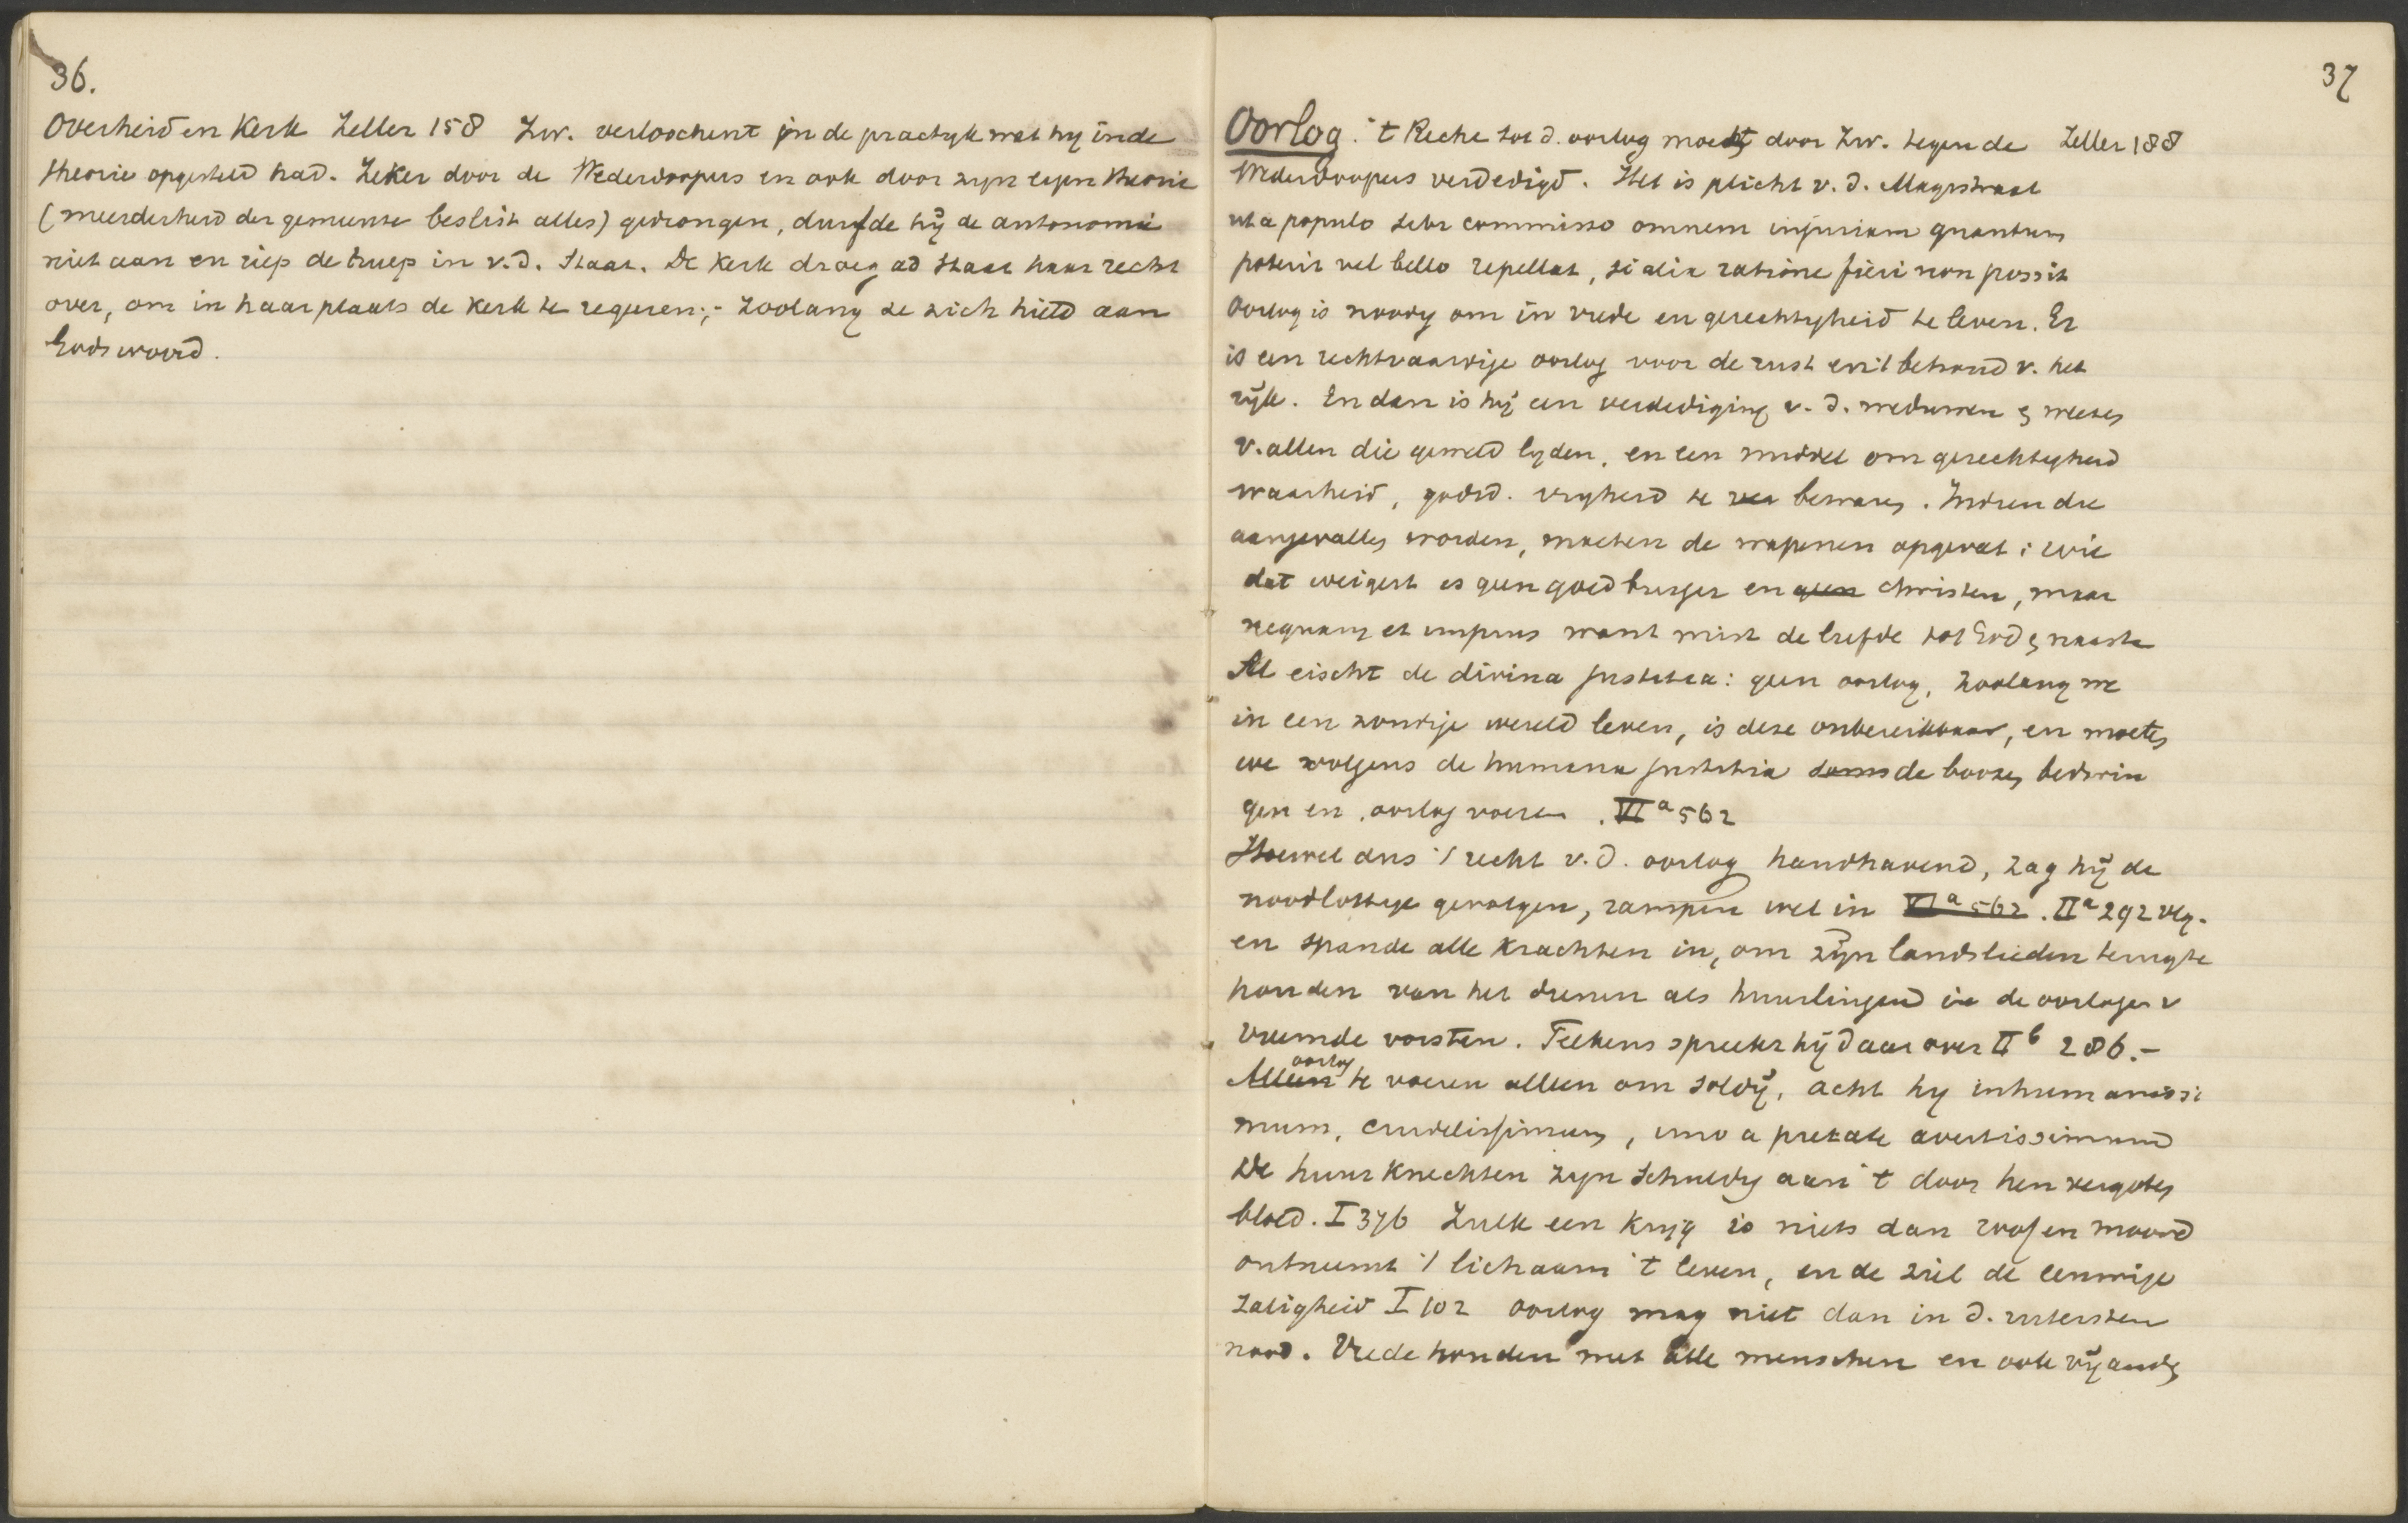 36.
Overheid en Kerk Zeller 158 Zw. verloochent in de practijk wat hij in de
theorie opgesteld had. Zeker door de Wederdoopers en ook door zijn eigen theorie
(meerderheid der gemeente beslist alles) gedrongen, durfde hij de autonomie
niet aan en riep de hulp in v.d. Staat. De Kerk droeg ad Staat haar recht
over, om in haar plaats de Kerk te regeren;- zoolang ze zich hield aan
Gods woord.
37
Oorlog. 't Recht tot d. oorlog moest door Zw. tegen de Zeller 188
Wederdoopers verdedigd. Het is plicht v. d. Magistraat
ut a populo sibi commisso omnem injuriam quantum
poterit vel bello repellat, si alia ratione fieri non possit
Oorlog is noodig om in vrede en gerechtigheid te leven. Er
is een rechtvaardige oorlog voor de rust en 't behoud v. het
rijk. En dan is hij een verdediging v. d. weduwen & weezen
v. allen die geweld lijden, en een middel om gerechtigheid
waarheid, godsd. vrijheid te bewaren. Indien die
aangevallen worden, moeten de wapenen opgevat; wie
dat weigert is geen goed burger en geen christen, maar
nequam et impius want mist de liefde tot God & naaste
Al eischt de divina justitia: geen oorlog, zoolang we
in een zondige wereld leven, is deze onbereikbaar, en moeten
we volgens de humana justitia soms de boozen bedwin
gen en oorlog voeren. VI a 562
Hoewel dus 't recht v. d. oorlog handhavend, zag hij de
noodlottige gevolgen, rampen wel in VI a 562. II a 292 vlg.
en spande alle krachten in, om zijn landslieden terug te
houden van het dienen als huurlingen in de oorlogen v
vreemde vorsten. Telkens spreekt hij daar over II b 286.-
Alleen oorlog te voeren alleen om soldij, acht hij inhumanissi
mum, crudelissimum, imo a pietate aversissimum
De huurknechten zijn schuldig aan 't door hen vergoten
bloed. I 376 Zulk een krijg is niets dan roof en moord
ontneemt 't lichaam 't leven, en de ziel de eeuwige
zaligheid I 102 oorlog mag niet dan in d. uitersten
nood. Vrede houden met alle menschen en ook vijanden